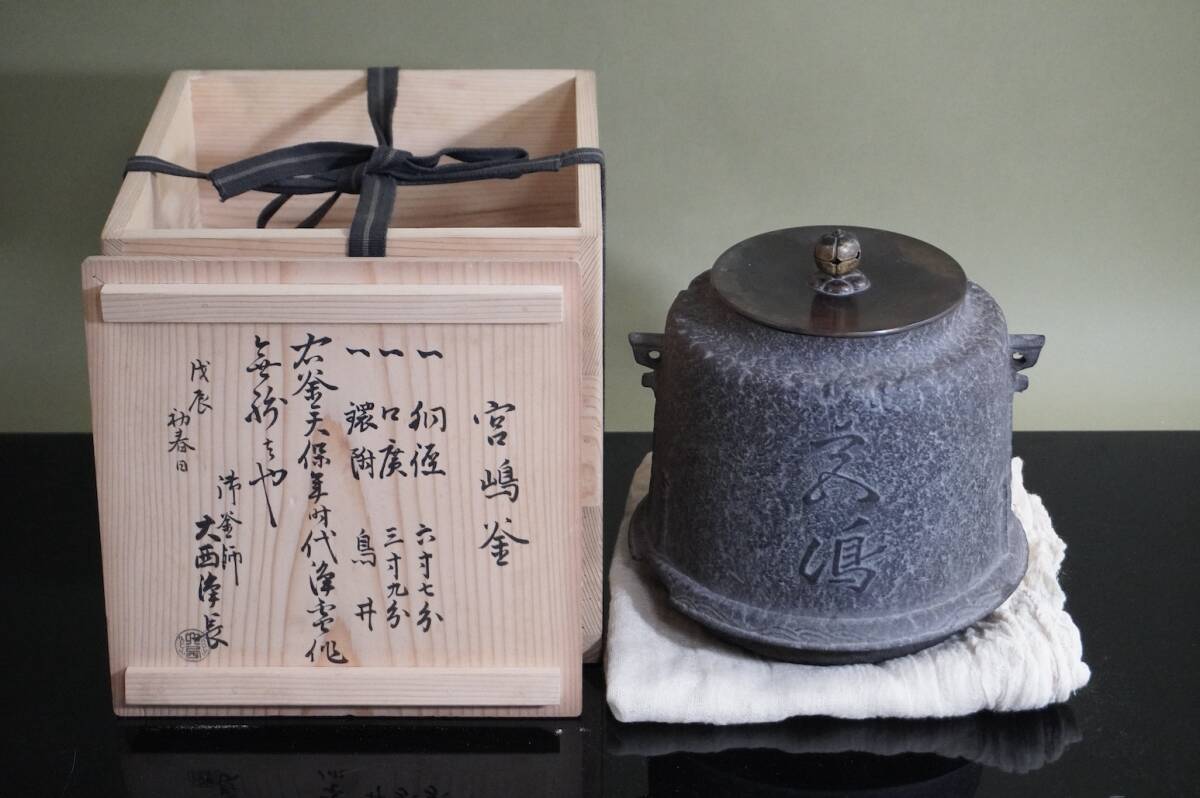 宮嶋釜
一 胴径 六寸七分
一 口廣 三寸九分
一 環附 鳥井
右釜天保年時代浄雪作
無紛者也
戊辰
初春日
御釜師
大西浄長
宮嶋